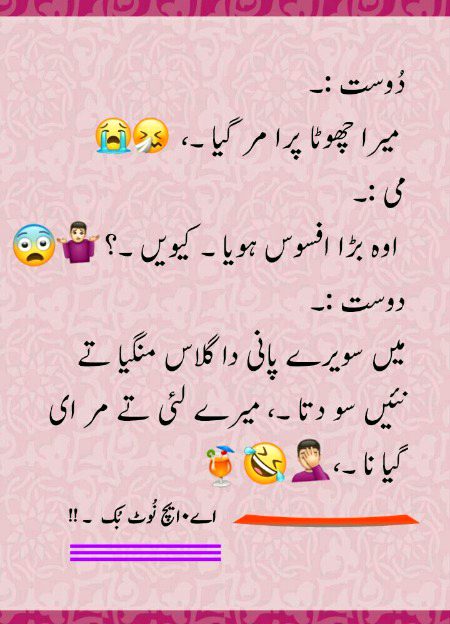 دُوست :۔
میرا چھوٹا پرا مر گیا ۔، 🤧😭
می :۔
اوہ بڑا افسوس ہویا ۔ کیویں ۔؟ 🤷🏻‍♂️😨
دوست :۔
میں سویرے پانی دا گلاس منگیا تے
نئیں سو دتا ۔، میرے لئی تے مر ای
گیا نا ۔، 🤦🏻‍♂️🤣🍹
اے۰ایچ نُوٹ بُک ۔ !!